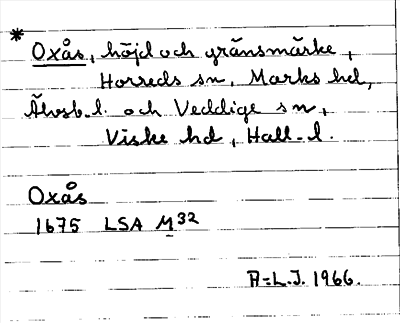 * Oxås, höjd och gränsmärke,
Horreds sn, Marks hd,
Älvsb. l. och Veddige sn,
Viske hd, Hall. l.
Oxås
1675 LSA M32
A-L.J. 1966.